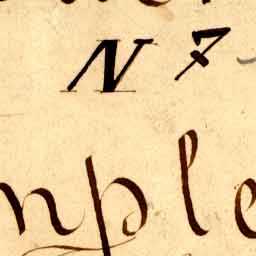 N 7
mple